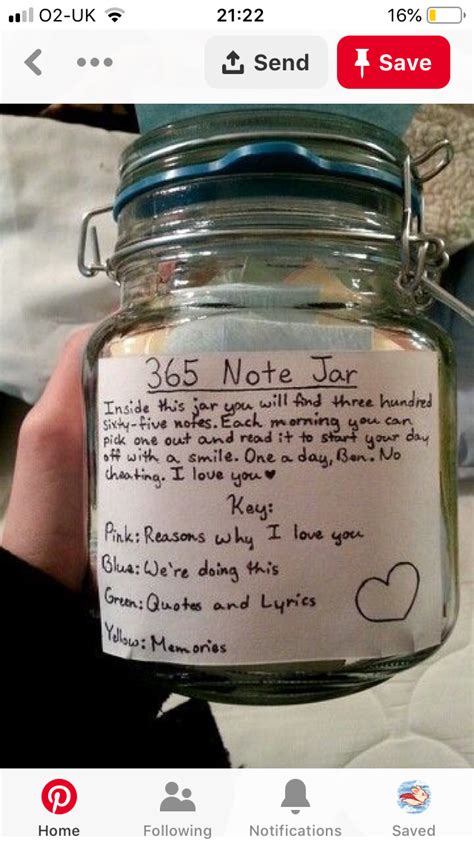 O2-UK 21:22 16%
Send Save
365 Note Jar
Inside this jar you will find three hundred
sixty-five notes. Each morning you can
pick one out and read it to start your day
off with a smile. One a day, Ben. No
cheating. I love you ♥
Key:
Pink: Reasons why I love you
Blue: We're doing this
Green: Quotes and Lyrics
Yellow: Memories
Home Following Notifications Saved